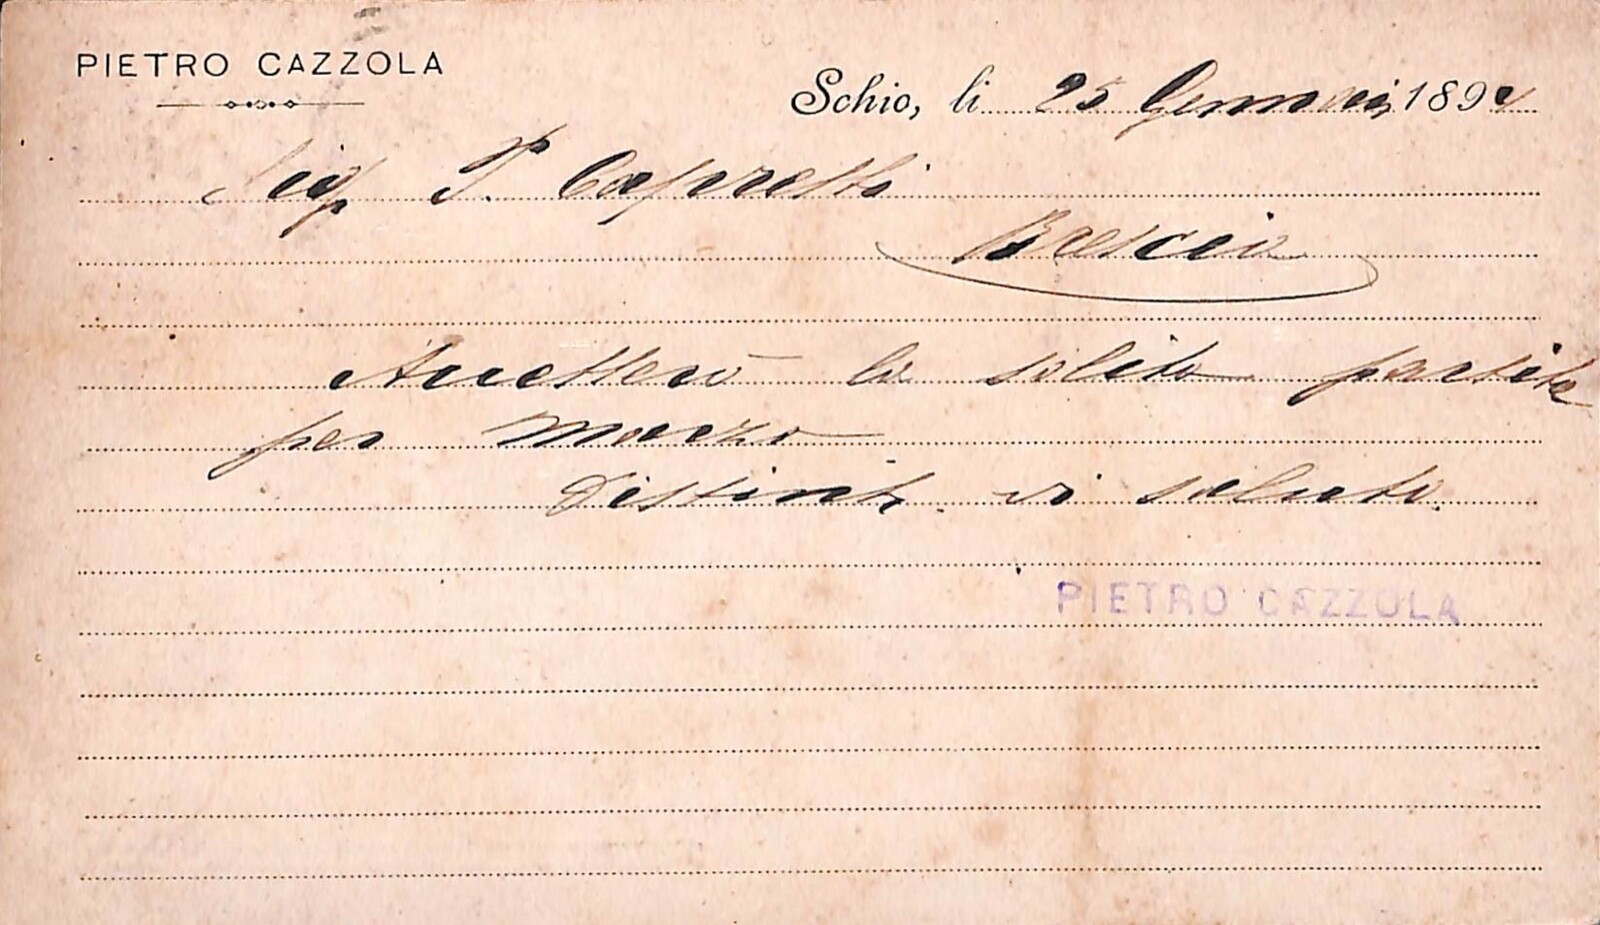 PIETRO CAZZOLA
Schio, li 25 Gennaio 189
Sig. P. Capretti
Brescia
Accetterò la solita partita
per marzo
Distint. vi saluto.
PIETRO CAZZOLA